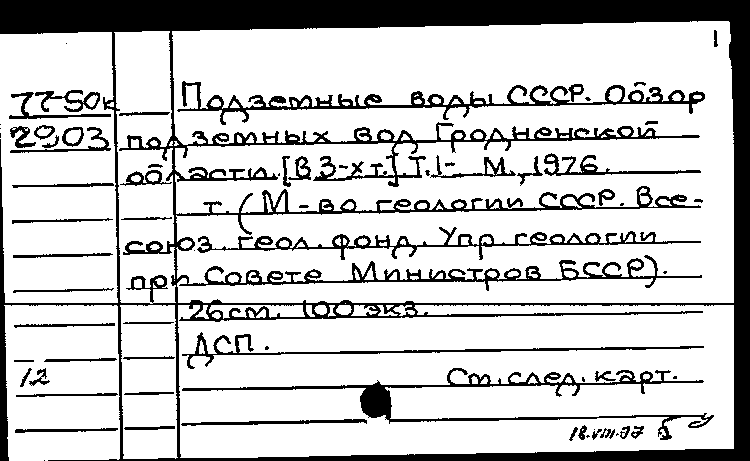 1
77-50к Подземные воды СССР. Обзор
2903 подземных вод Гродненской
области. [В 3-х т.] Т.1- М., 1976.
т. (М-во геологии СССР. Все-
союз. геол. фонд. Упр. геологии
при Совете Министров БССР).
26 см. 100 экз.
ДСП.
12 См. след. карт.
18.VIII-77